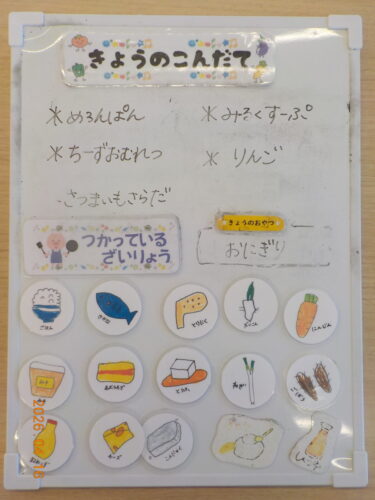 きょうのこんだて
*めろんぱん
*みるくすーぷ
*ちーずおむれつ
*りんご
さつまいもさらだ
きょうのおやつ
つかっている
ざいりょう
おにぎり
ごはん
さかな
とりにく
だいこん
にんじん
みそ
あぶらあげ
とうふ
ねぎ
ごぼう
チーズ
こんにゃく